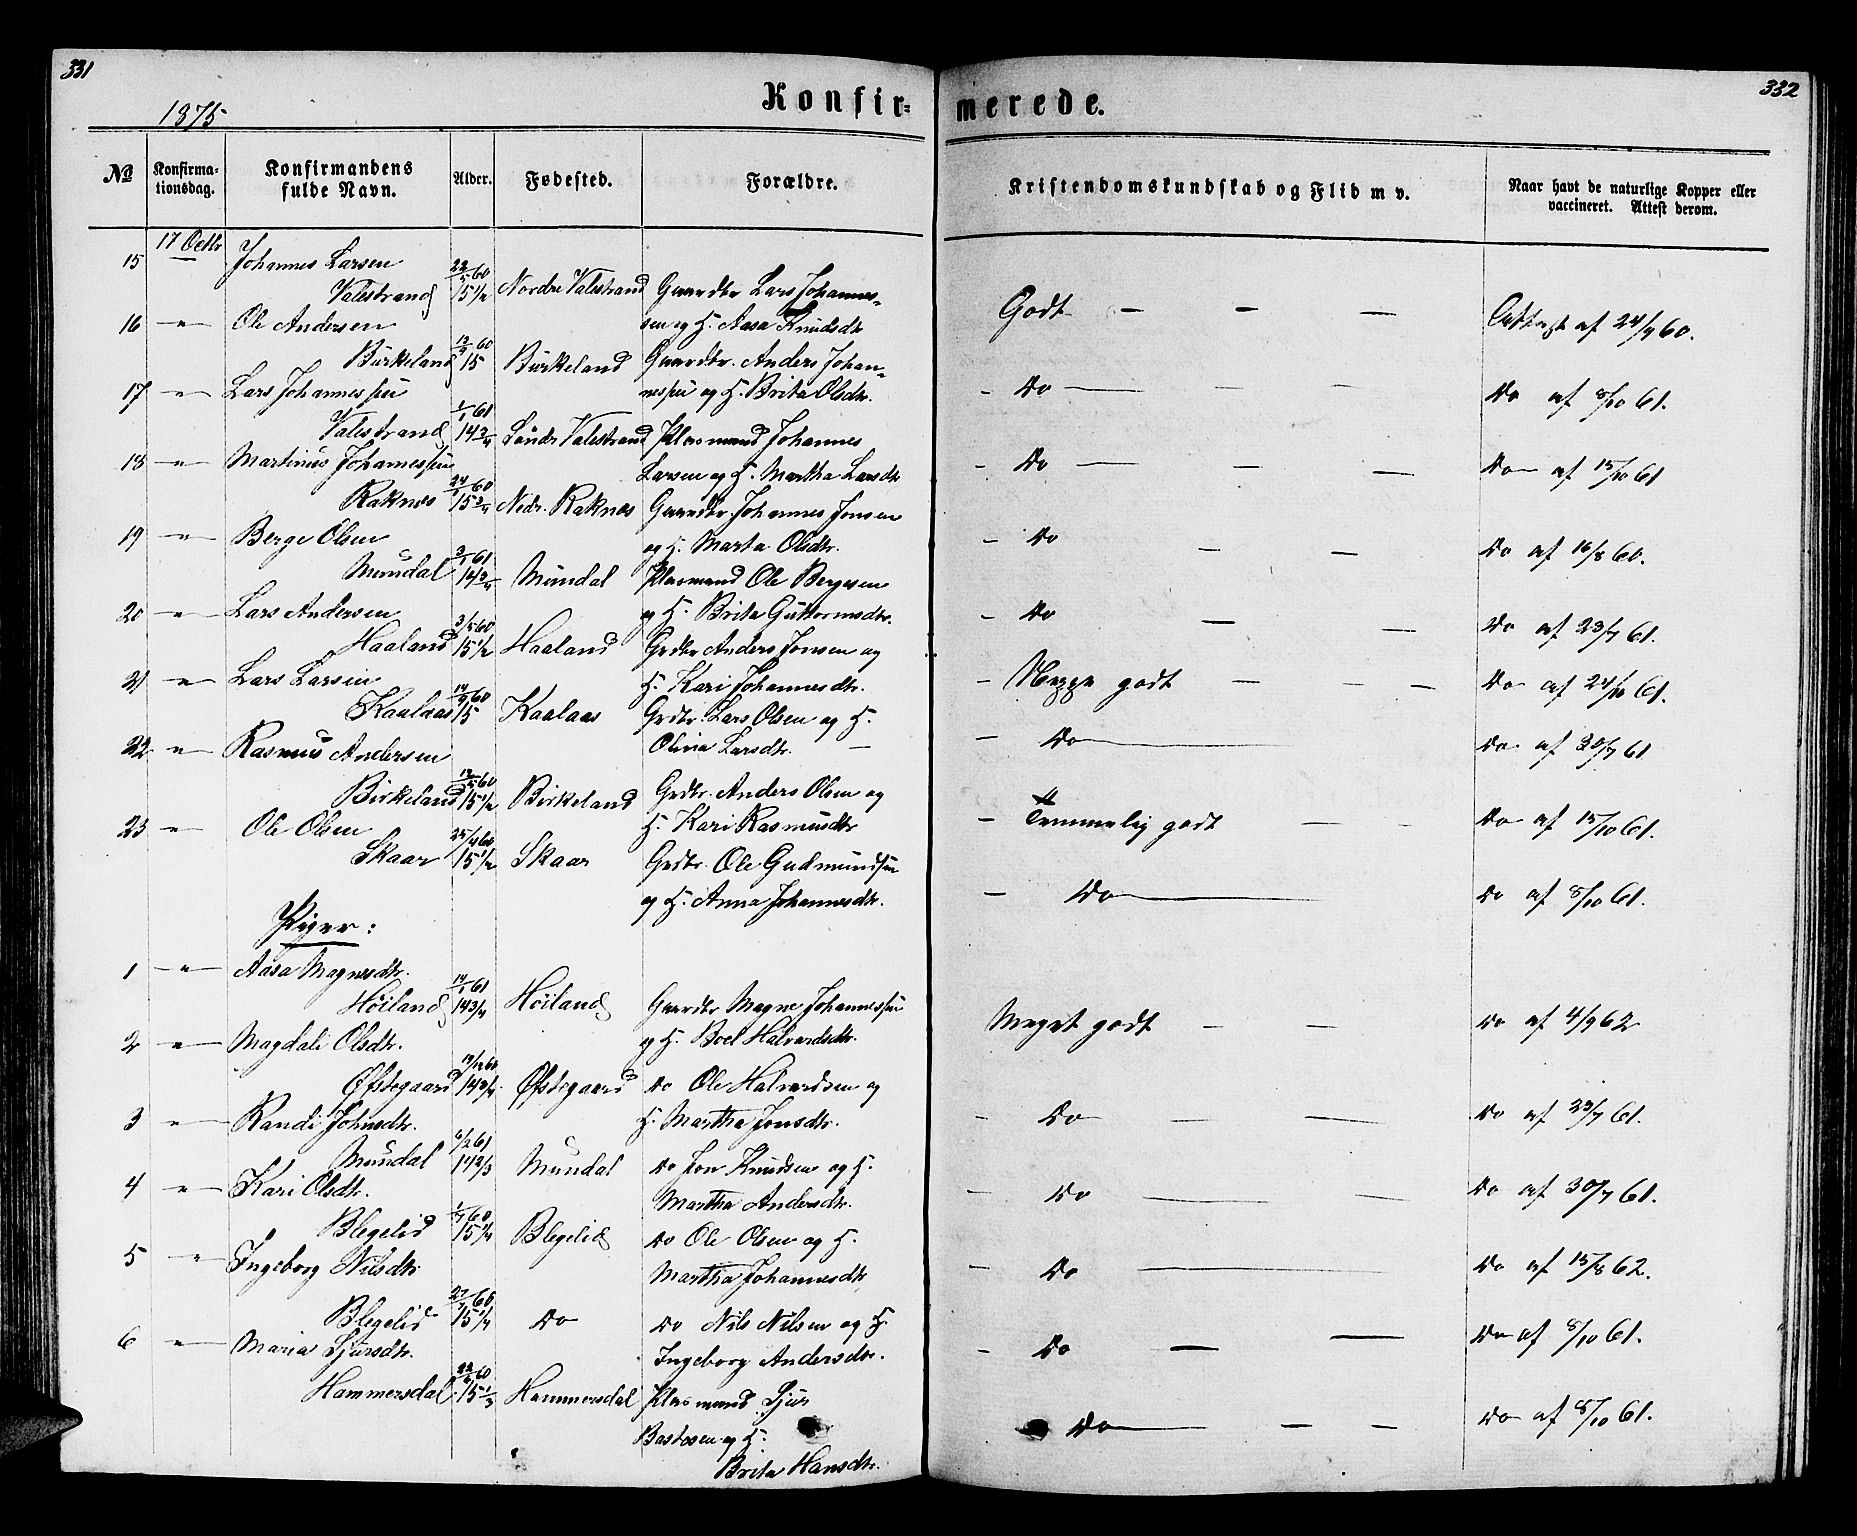 331
1875
Konfir-
№
Konfirma-
tionsdag.
Konfirmandens
fulde Navn.
Alder.
Fødested.
Forældre.
15 17 Octbr Johannes Larsen 22/5 60
Valestrand 15 1/2 Nordre Valestrand Gaardbr Lars Johannes-
16 " Ole Andersen sen og H. Aasa Knudsdtr
Birkeland 15 Birkeland Gaardbr. Anders Johan-
17 " Lars Johannessen nessen og H. Brita Olsdtr.
1/1 61
Valestrand 14 3/4 Söndr Valestrand Plasmand Johannes
18 " Martinus Johannessen Larsen og H. Martha Larsdtr
Raknes Nedr. Raknes Gaardbr. Johannes Jonsen
19 " Berge Olsen og H. Marta Olsdtr.
3/1 61
Mundal 14 3/4 Mundal Plasmand Ole Bergesen
20 " Lars Andersen og H. Brita Guttormsdtr.
3/5 60
Haaland 15 1/2 Haaland Grdbr Anders Jonsen og
21 " Lars Larsen H. Kari Johannesdtr.
Kaalaas 15 Kaalaas Grdbr. Lars Olsen og H.
22 " Rasmus Andersen Olivia Larsdtr. —
Birkeland 15 1/2 Birkeland Grdbr. Anders Olsen og
23 " Ole Olsen H. Kari Rasmusdtr
25/4 60
Skaar 15 1/2 Skaar Grdbr. Ole Gudmundsen
og H. Anna Johannesdtr.
Piger:
1 " Aasa Magnesdtr.
14/1 61
Höiland 14 3/4 Höiland Gaardbr Magne Johannessen
2 " Magdali Olsdtr. og H. Boel Halvardsdtr.
19/12 60
Øfstegaard 14 3/4 Øfstegaard Do Ole Halvardsen og
3 " Randi Johnsdtr. H. Martha Jonsdtr.
6/2 61
Mundal 14 2/3 Mundal Do Jon Knudsen og H.
4 " Kari Olsdtr. Martha Andersdtr.
1/7 60
Blegelid 15 1/4 Blegelid Do Ole Olsen og H.
5 " Ingeborg Nilsdtr Martha Johannesdtr
27/7 60
Blegelid 15 1/4 Do Do Nils Nilsen og H.
6 " Maria Sjursdtr. Ingeborg Andersdtr.
22/6 60
Hammersdal 15 1/3 Hammersdal Plasmand Sjur
Bastesen og H.
Brita Hansdtr.
332
merede.
Kristendomskundskab og Flid m v.
Naar havt de naturlige Kopper eller
vaccineret. Attest derom.
Godt — — — Attest af 24/9 60.
- Do — — — Do af 8/10 61.
- Do — — — Do af 15/10 61
- Do — — Do af 16/8 60.
- Do — — Do af 23/7 61.
- Meget godt — — — Do af 24/10 61.
- Do — Do af 30/7 61
- Temmelig godt — — Do af 15/10 61.
- Do — Do af 8/10 61.
Meget godt — — Do af 4/9 62
- Do — — Do af 23/7 61.
- Do — — Do af 30/7 61.
- Do — Do af 15/8 62.
- Do — — Do af 8/10 61.
- Do — — — Do af 8/10 61.